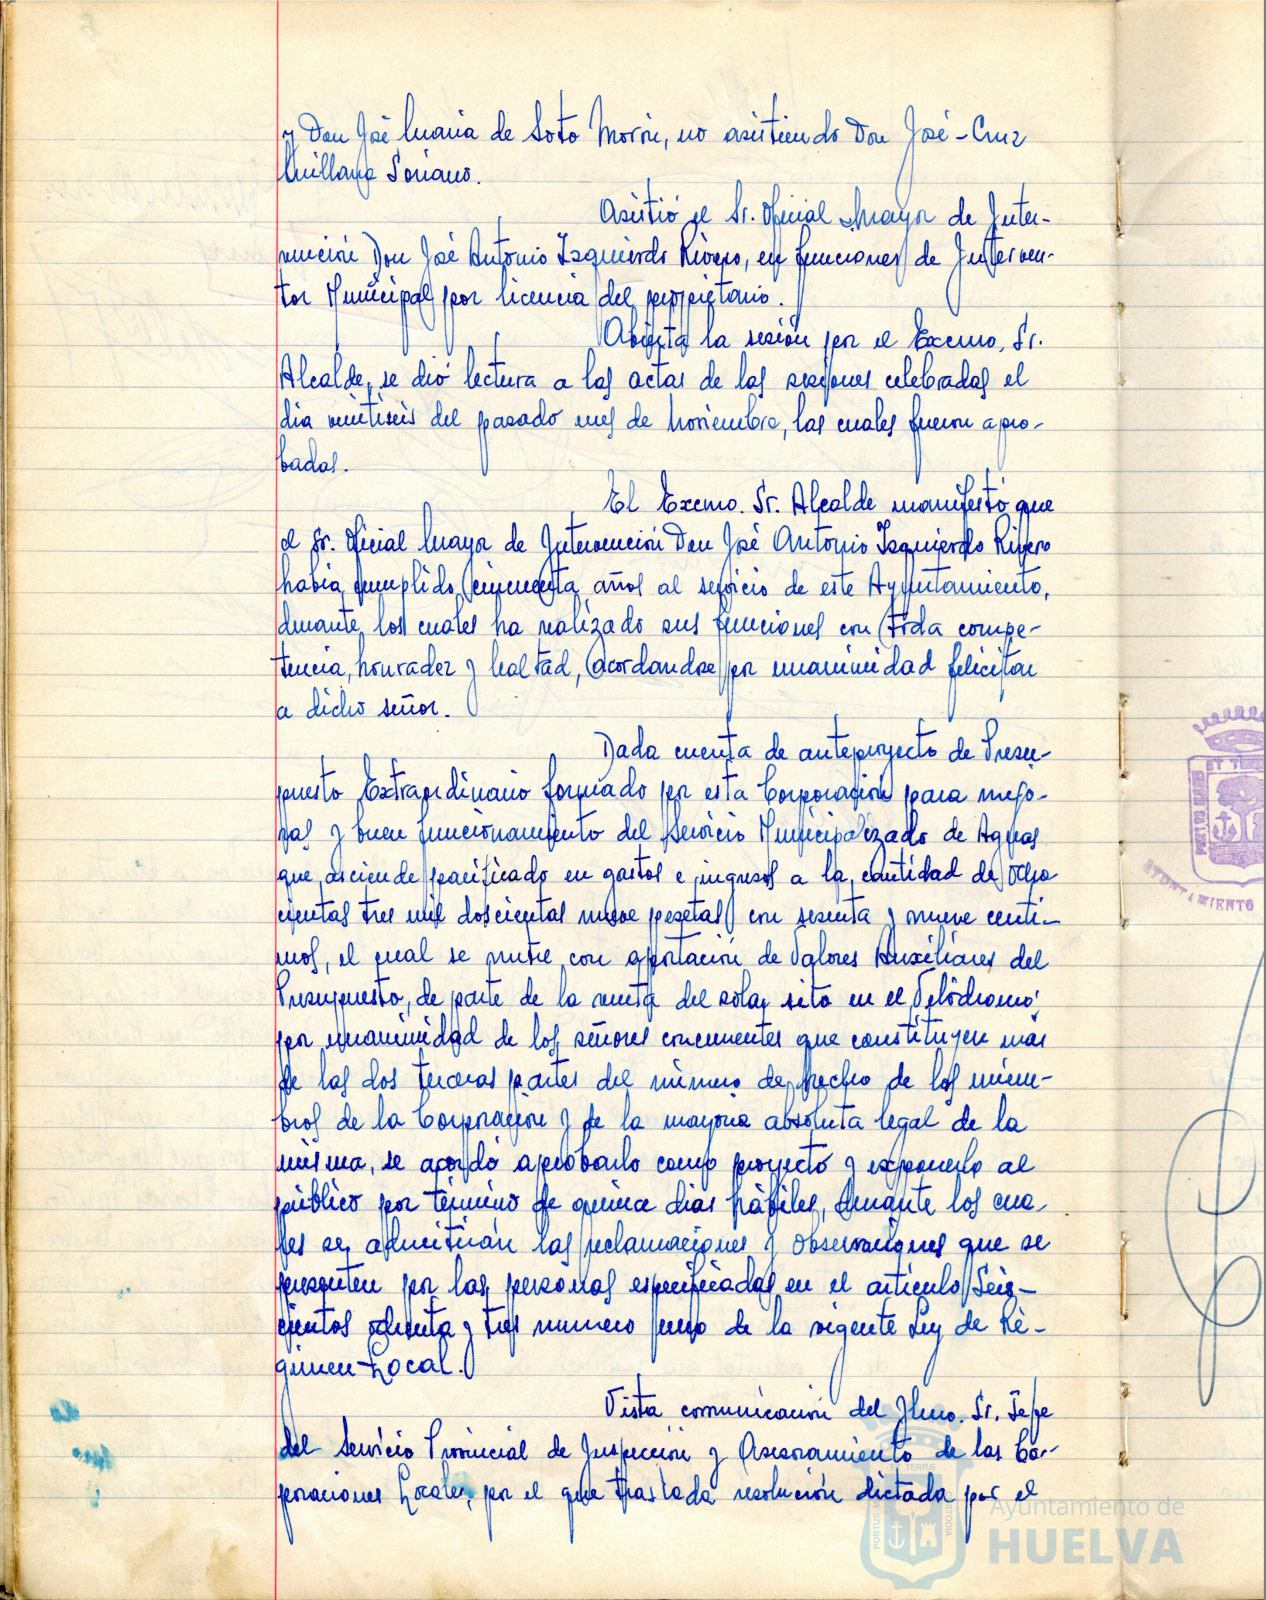 y Don José María de Soto Morón, no asistiendo Don José-Cruz
Quillana Soriano.
Asistió el Sr. Oficial Mayor de Inter-
vención Don José Antonio Izquierdo Rivero, en funciones de Interven-
tor Municipal por licencia del propietario.
Abierta la sesión por el Excmo. Sr.
Alcalde, se dió lectura a las actas de las sesiones celebradas el
dia veintiseis del pasado mes de Noviembre, las cuales fueron apro-
badas.
El Excmo. Sr. Alcalde manifestó que
el Sr. Oficial Mayor de Intervención Don José Antonio Izquierdo Rivero
habia cumplido cincuenta años al servicio de este Ayuntamiento,
durante los cuales ha realizado sus funciones con toda compe-
tencia, honradez y lealtad, acordandose por unanimidad felicitar
a dicho señor.
Dada cuenta de anteproyecto de Presu-
puesto Extraordinario formado por esta Corporación para mejo-
ras y buen funcionamiento del Servicio Municipalizado de Aguas
que asciende pacificado en gastos e ingresos a la cantidad de ocho
cientas tres mil doscientas nueve pesetas con sesenta y nueve centi-
mos, el cual se nutre con aportación de Valores Auxiliares del
Presupuesto, de parte de la venta del solar sito en el Velódromo;
por unanimidad de los señores concurrentes que constituyen más
de las dos terceras partes del número de hecho de los miem-
bros de la Corporación y de la mayoria absoluta legal de la
misma, se acordó aprobarlo como proyecto y exponerlo al
público por término de quince dias hábiles, durante los cua-
les se admitirán las reclamaciones y observaciones que se
presenten por las personas especificadas en el artículo Seis-
cientos ochenta y tres numero de la vigente Ley de Ré-
gimen Local.
Vista comunicación del Ilmo. Sr. Jefe
del Servicio Provincial de Inspección y Asesoramiento de las Cor-
poraciones Locales, por el que traslada resolución dictada por el
AYUNTAMIENTO
Ayuntamiento de
HUELVA